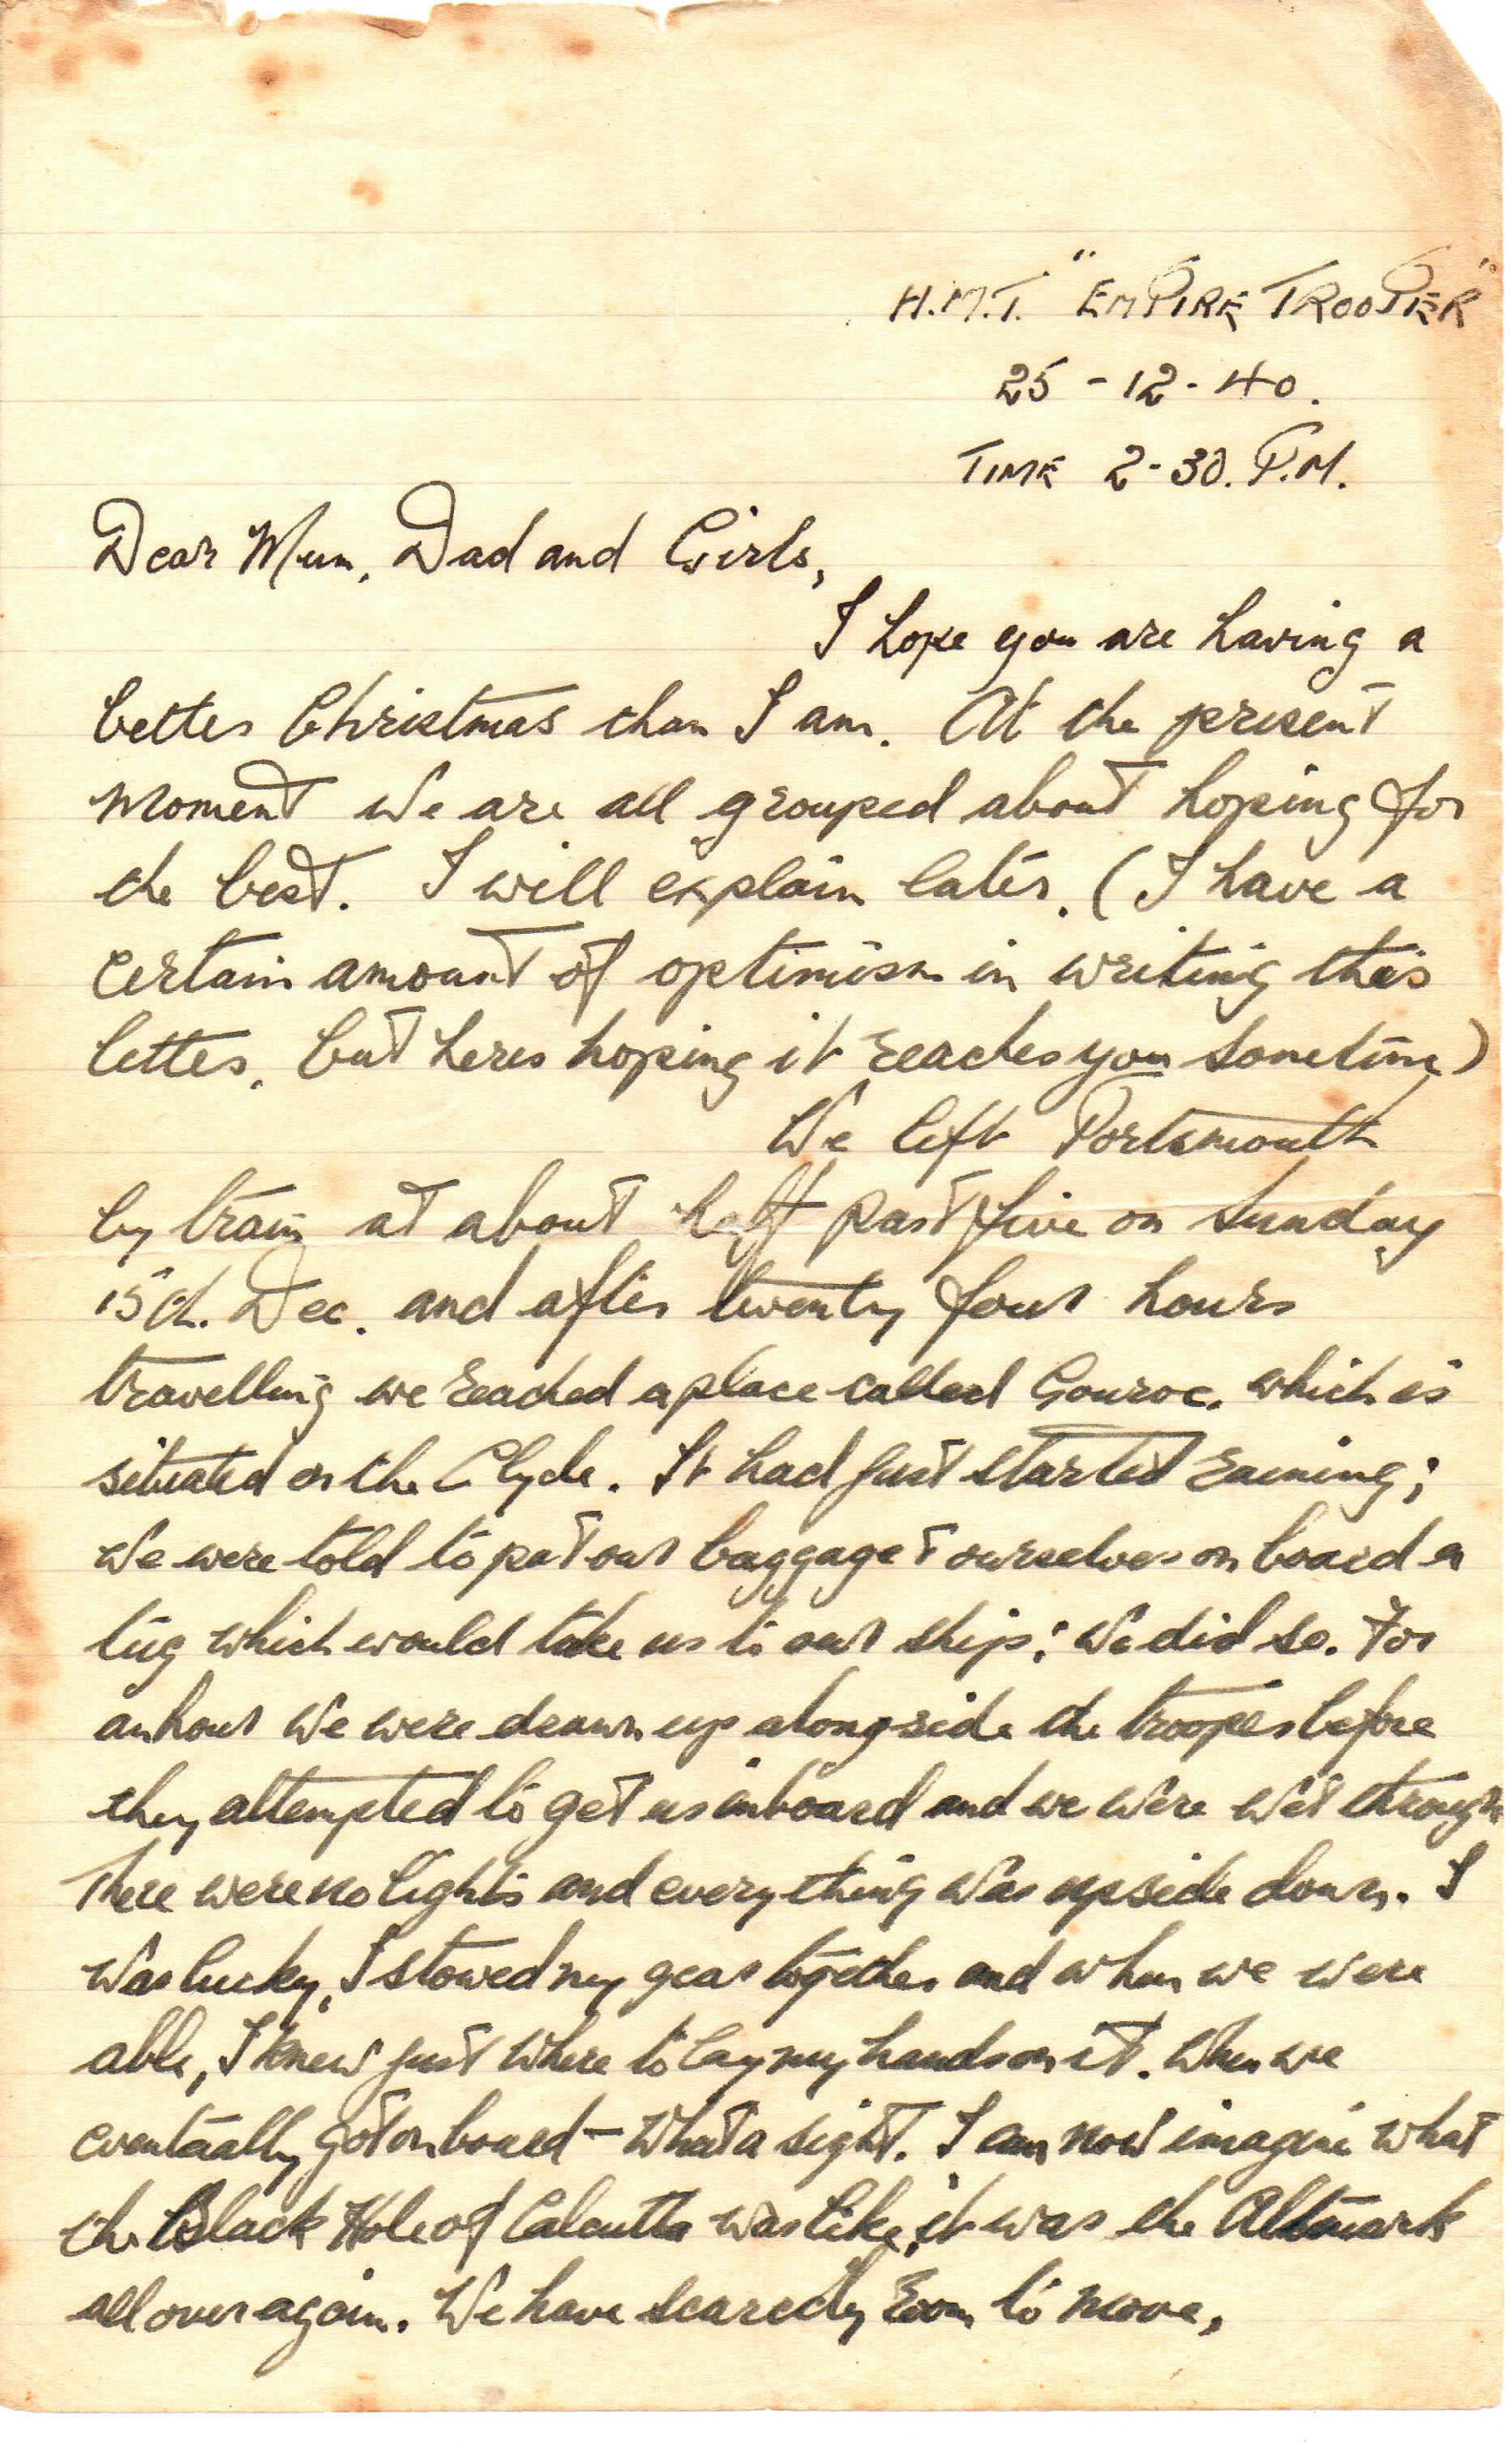 H.M.T. "EMPIRE TROOPER"
25-12-40.
TIME 2-30. P.M.
Dear Mum, Dad and Girls,
I hope you are having a
better Christmas than I am. At the present
moment we are all grouped about hoping for
the best. I will explain later. (I have a
certain amount of optimism in writing this
letter, but heres hoping it reaches you sometime)
We left Portsmouth
by train at about half past five on Sunday
15th. Dec. and after twenty four hours
travelling we reached a place called Gouroc, which is
situated on the Clyde. It had just started raining;
we were told to put our baggage & ourselves on board a
tug which would take us to our ship; we did so. For
an hour we were drawn up alongside the trooper before
they attempted to get us inboard and we were wet through
There were no lights and everything was upside down. I
was lucky, I stowed my gear together and when we were
able, I knew just where to lay my hands on it. When we
eventually got on board - what a sight. I can now imagine what
the Black Hole of Calcutta was like, it was the Altmark
all over again. We have scarcely room to move,